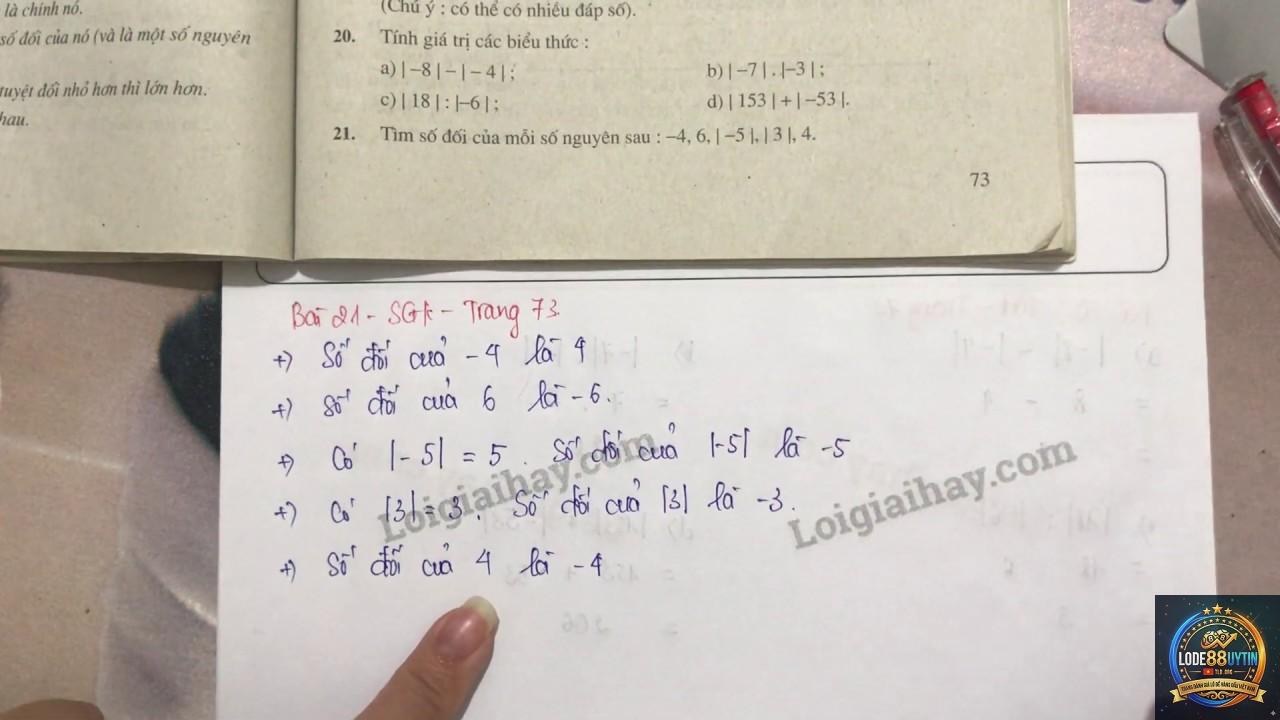 là chính nó.
số đối của nó (và là một số nguyên
tuyệt đối nhỏ hơn thì lớn hơn.
hau.
(Chú ý : có thể có nhiều đáp số).
20. Tính giá trị các biểu thức :
a) | −8 | − | − 4 | ; b) | −7 | . |−3 | ;
c) | 18 | : |−6 | ; d) | 153 | + | −53 |.
21. Tìm số đối của mỗi số nguyên sau : −4, 6, | −5 |, | 3 |, 4.
73
Bài 21 - SGK - Trang 73.
+) Số đối của - 4 là 4
+) Số đối của 6 là - 6.
+) Có |- 5| = 5 . Số đối của |-5| là -5
+) Có |3| = 3. Số đối của |3| là -3.
+) Số đối của 4 là - 4
Loigiaihay.com
Loigiaihay.com
LODE88UYTIN
TLD .ORG